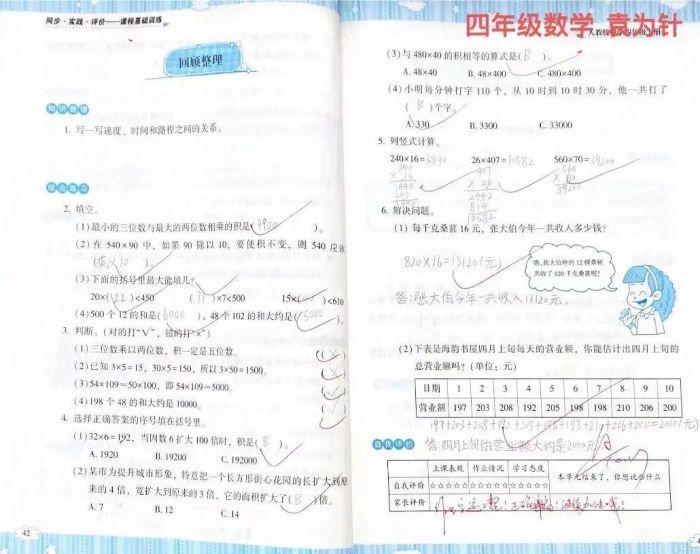 同步·实践·评价——课程基础训练
回顾整理
知识整理
1. 写一写速度、时间和路程之间的关系。
综合练习
2. 填空。
(1)最小的三位数与最大的两位数相乘的积是( 9900 )。
(2)在 540×90 中，如果 90 除以 10，要使积不变，则 540 应该
(乘以10 )。
(3)下面的括号里最大能填几?
20×( 22 )<450 ( )×7<500 15×( )<610
(4)500 个 12 的和是( 6000 )，48 个 102 的和大约是( 5000 )。
3. 判断。(对的打“√”，错的打“×”)
(1)三位数乘以两位数，积一定是五位数。
(2)已知 3×5=15，30×5=150，所以 3×50=1500。
(3)54×109≈50×100，即 54×109≈5000。
(4)198 个 48 的和大约是 10000。
4. 选择正确答案的序号填在括号里。
(1)32×6=192，当因数 6 扩大 100 倍时，积是( B )。
A. 1920 B. 19200 C. 192000
(2)某市为提升城市形象，特意把一个长方形街心花园的长扩大到原
来的 4 倍，宽扩大到原来的 3 倍，它的面积扩大了( B )倍。
A. 7 B. 12 C. 14
42
四年级数学 袁为针
(3)与 480×40 的积相等的算式是( B )。
A. 48×40 B. 48×400 C. 480×400
(4)小明每分钟打字 110 个，从 10 时到 10 时 30 分，他一共打了
( B )个字。
A. 330 B. 3300 C. 33000
5. 列竖式计算。
240×16=3840 26×407=10582 560×70=39200
240 407 560
× 16 × 26 × 70
1440 2442 39200
240 814
3840 10582
6. 解决问题。
(1)每千克桑葚 16 元，张大伯今年一共收入多少钱?
820×16=13120(元)
嗨，张大伯种的 12 棵桑树
共收了 820 千克桑葚呢!
答:张大伯今年一共收入13120元。
(2)下表是海韵书屋四月上旬每天的营业额，你能估计出四月上旬的
总营业额吗? (单位：元)
日期 1 2 3 4 5 6 7 8 9 10
营业额 197 203 208 192 205 198 198 210 206 200
197+203+208+192+205+198+198+210+206+200≈2000(元)
自我评价
答:四月上旬的营业额大约是2000元
上课表现 作业情况 学习态度 本单元结束了，你想说些什么
自我评价 ☆☆☆☆☆ ☆☆☆☆☆ ☆☆☆☆☆
家长评价